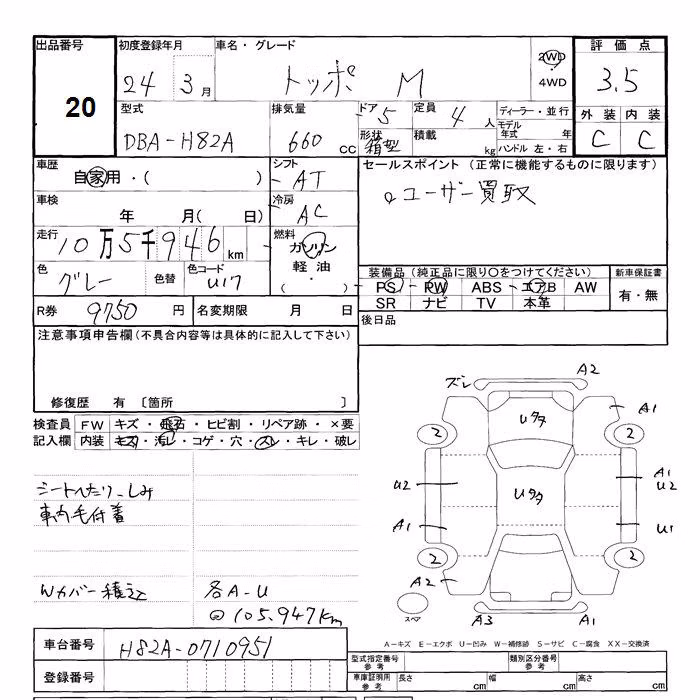 出品番号 初度登録年月 車名・グレード 評価点
20 24 3月 トッポ M 2WD 4WD 3.5
型式 排気量 ドア 5 定員 4人 ディーラー・並行 外装 内装
DBA-H82A 660 CC 形状 箱型 積載 kg モデル年式 年 C C
ハンドル 左・右
車歴 シフト セールスポイント (正常に機能するものに限ります)
自家用・( ) AT ユーザー買取
車検 冷房
年 月( 日) AC
走行 燃料
10万5千946km ガソリン
軽油
( )
色 色替 色コード 装備品 (純正品に限り○をつけてください) 新車保証書
グレー U17 PS PW ABS エアB AW 有・無
SR ナビ TV 本革
R券 9750円 名変期限 月 日 後日品
注意事項申告欄(不具合内容等は具体的に記入して下さい)
修復歴 有 〔箇所 〕
検査員 FW キズ・飛石・ヒビ割・リペア跡・×要
記入欄 内装 キズ・汚レ・コゲ・穴・スレ・キレ・破レ
シートへたり、しみ
車内毛付着
Wカバー積込 各A-U
@105.947km
ズレ A2
A1
2 Uタタ 2
U2 Uタタ A1 U2
A1 U1
2 2
A2
スペア A3 A1
A-キズ E-エクボ U-凹み W-補修跡 S-サビ C-腐食 XX-交換済
車台番号 H82A-0710951
登録番号
型式指定番号 参考 類別区分番号 参考
車庫証明用 参考 長さ cm 幅 cm 高さ cm